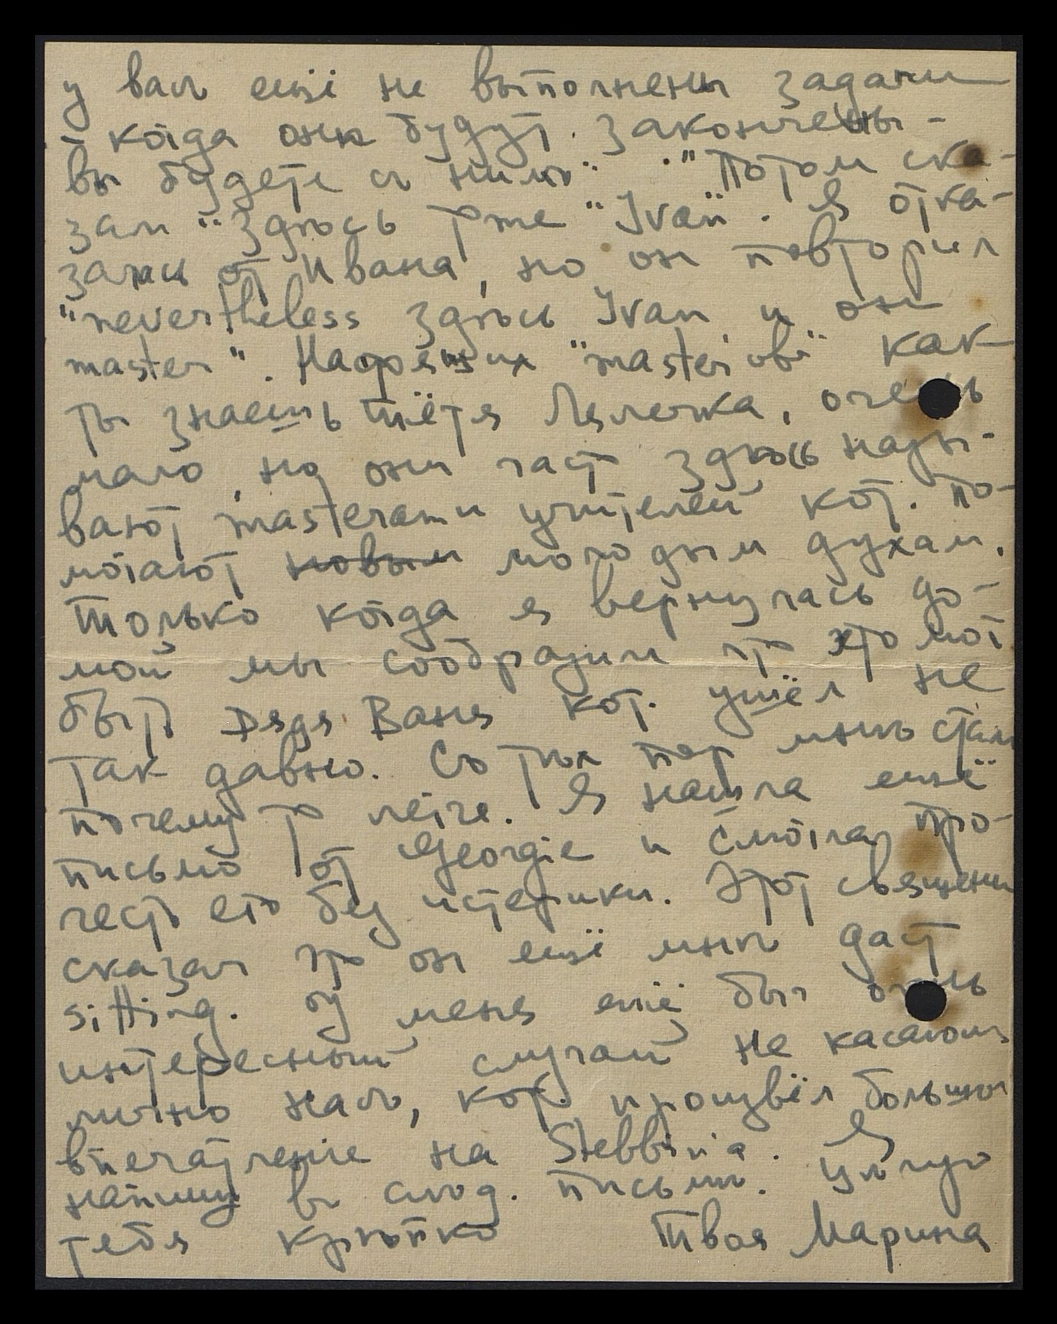 у васъ ещё не выполнены задачи
- когда они будутъ закончены -
вы будете съ ними". "Потом ска-
зал "Здѣсь тоже "Ivan". Я отка-
залась от Ивана, но он повторил
"nevertheless здѣсь Ivan и он
master". Настоящих "master'овъ" как
ты знаешь тётя Лялечка, очень
мало, но они часто здѣсь назы-
вают masterами учителей кот. по-
могают новым молодым духам.
Только когда я вернулась до-
мой мы сообразили что это мог
быть Дядя Ваня кот. ушёл не
так давно. Съ тѣх пор мнѣ стало
почему то легче. Я нашла ещё
письмо от Georgie и смогла про-
честь его без истерики. Этот священник
сказал что он ещё мнѣ даст
sitting. У меня ещё был очень
интересный случай не касающ.
лично насъ, кот. произвёл большое
впечатленіе на Stebbin'а. Я
напишу въ слѣд. письмѣ. Цѣлую
тебя крѣпко Твоя Марина